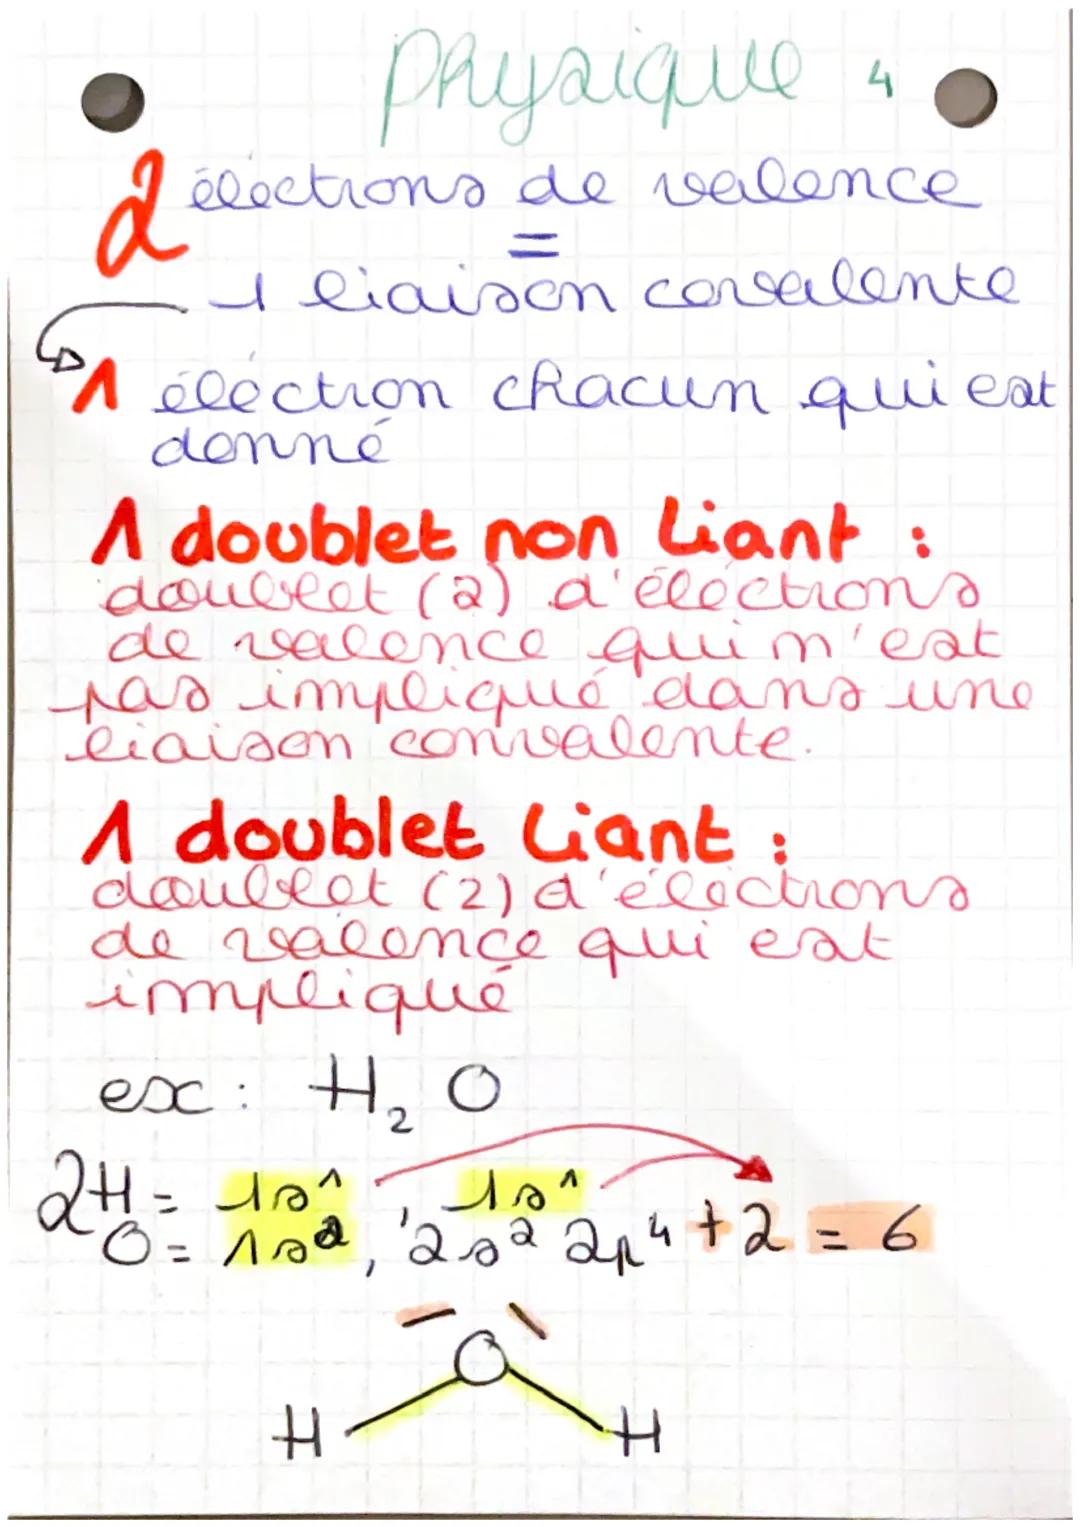 physique 4
2 électrons de valence
=
1 liaison covalente
1 éléctron chacun qui est
donné
1 doublet non liant :
doublet (2) d'éléctrons
de valence qui n'est
pas impliqué dans une
liaison convalente.
1 doublet liant :
doublet (2) d'éléctrons
de valence qui est
impliqué
ex : H₂O
2H = 1s¹, 1s¹
O = 1s², 2s² 2p⁴ + 2 = 6
O
H H